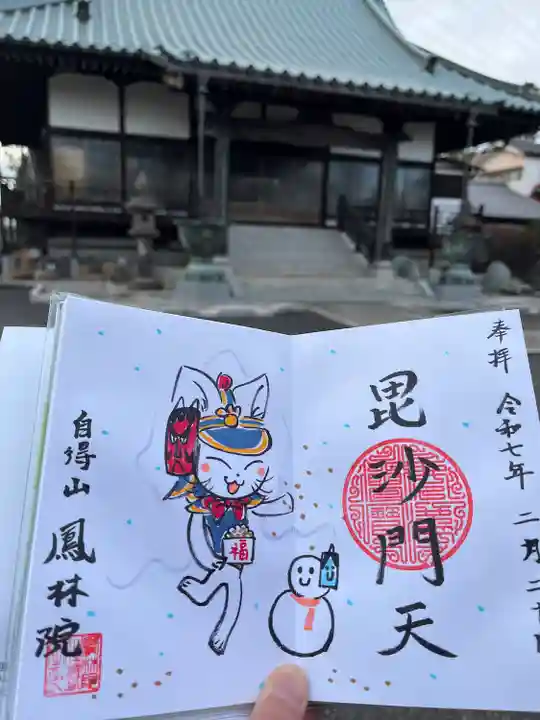 奉拝
令和七年二月二十
毘沙門天
福
自得山
鳳林院